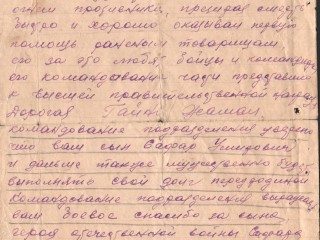 огнём противника, презирая смерть
быстро и хорошо оказывал первую
помощь раненым товарищам
его за это любят бойцы и командиры
его командование части представило
к высшей правительственной награде
Дорогая
командование подразделения уверено
что ваш сын Сафар
и дальше также мужественно будет
выполнять свой долг перед родиной
Командование подразделения выражает
вам боевое спасибо за сына
героя отечественной войны Сафара